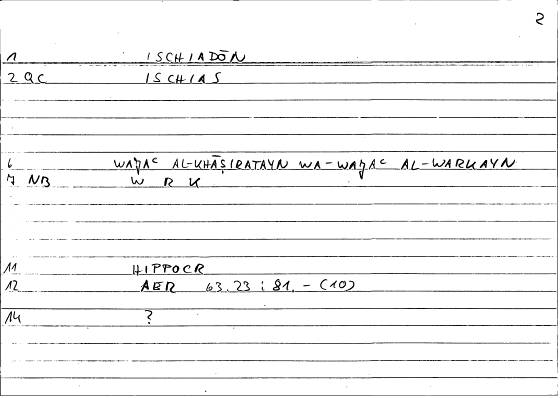 2
1 ISCHIADŌN
2 QC ISCHIAS
6 WAǦAʿ AL-KHĀṢIRATAYN WA-WAǦAʿ AL-WARKAYN
7 NB W R K
11 HIPPOCR
12 AER 63.23 ; 81. - (10)
14 ?